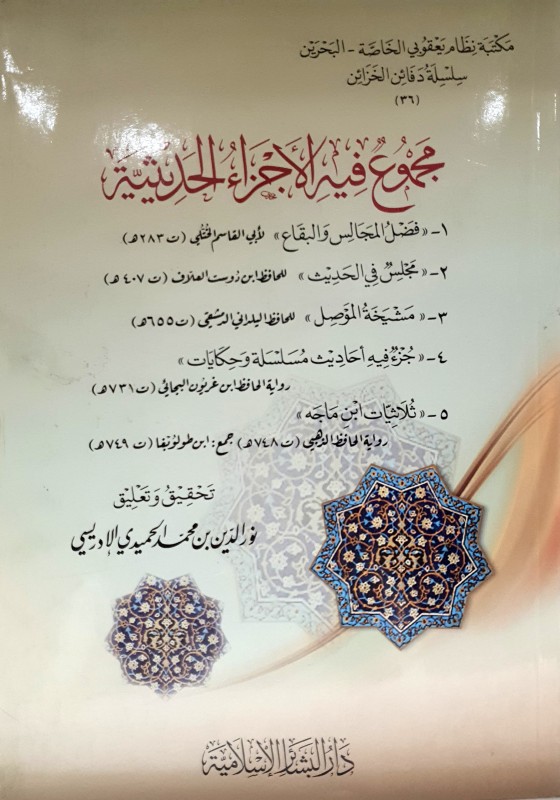 مكتبة نظام يعقوبي الخاصة - البحرين
سلسلة دفائن الخزائن
(٣٦)
مجموع فيه الأجزاء الحديثية
١- «فضل المجالس والبقاع» لأبي القاسم الختلي (ت ٢٨٣هـ)
٢- «مجلس في الحديث» للحافظ ابن دوست العلاف (ت ٤٠٧هـ)
٣- «مشيخة الموصل» للحافظ اليلداني الدمشقي (ت ٦٥٥هـ)
٤- «جزء فيه أحاديث مسلسلة وحكايات»
رواية الحافظ ابن غريون البجائي (ت ٧٣١هـ)
٥- «ثلاثيات ابن ماجه»
رواية الحافظ الذهبي (ت ٧٤٨هـ) جمع: ابن طولوبغا (ت ٧٤٩هـ)
تحقيق وتعليق
نور الدين بن محمد الحميدي الإدريسي
دار البشائر الإسلامية